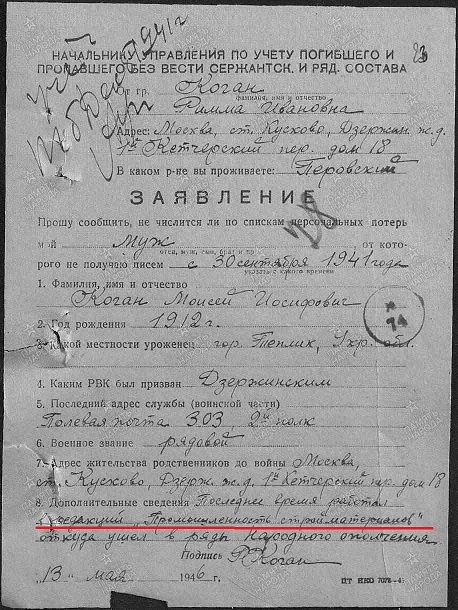 23
НАЧАЛЬНИКУ УПРАВЛЕНИЯ ПО УЧЕТУ ПОГИБШЕГО И
ПРОПАВШЕГО БЕЗ ВЕСТИ СЕРЖАНТСК. И РЯД. СОСТАВА
От гр. Коган
фамилия, имя и отчество
Римма Ивановна
Адрес: Москва, ст. Кусково, Дзержин. ж.д.
1й Кетчерский пер. дом 18
В каком р-не вы проживаете: Перовский
ЗАЯВЛЕНИЕ
Прошу сообщить, не числится ли по спискам персональных потерь
мой муж от кото-
отец, муж, сын, брат и пр.
рого не получаю писем с 30 сентября 1941 года
указать с какого времени
1. Фамилия, имя и отчество
Коган Моисей Иосифович
2. Год рождения 1912 г.
3. Какой местности уроженец гор. Теплик, Укр. обл.
4. Каким РВК был призван Дзержинским
5. Последний адрес службы (воинской части)
Полевая почта 303 2й полк
6. Военное звание рядовой
7. Адрес жительства родственников до войны Москва,
ст. Кусково, Дзерж. ж.д. 1й Кетчерский пер. дом 18
8. Дополнительные сведения Последнее время работал
в редакции "Промышленность стройматериалов"
откуда ушел в ряды Народного ополчения
Подпись Р. Коган
"13" мая 1946 г.